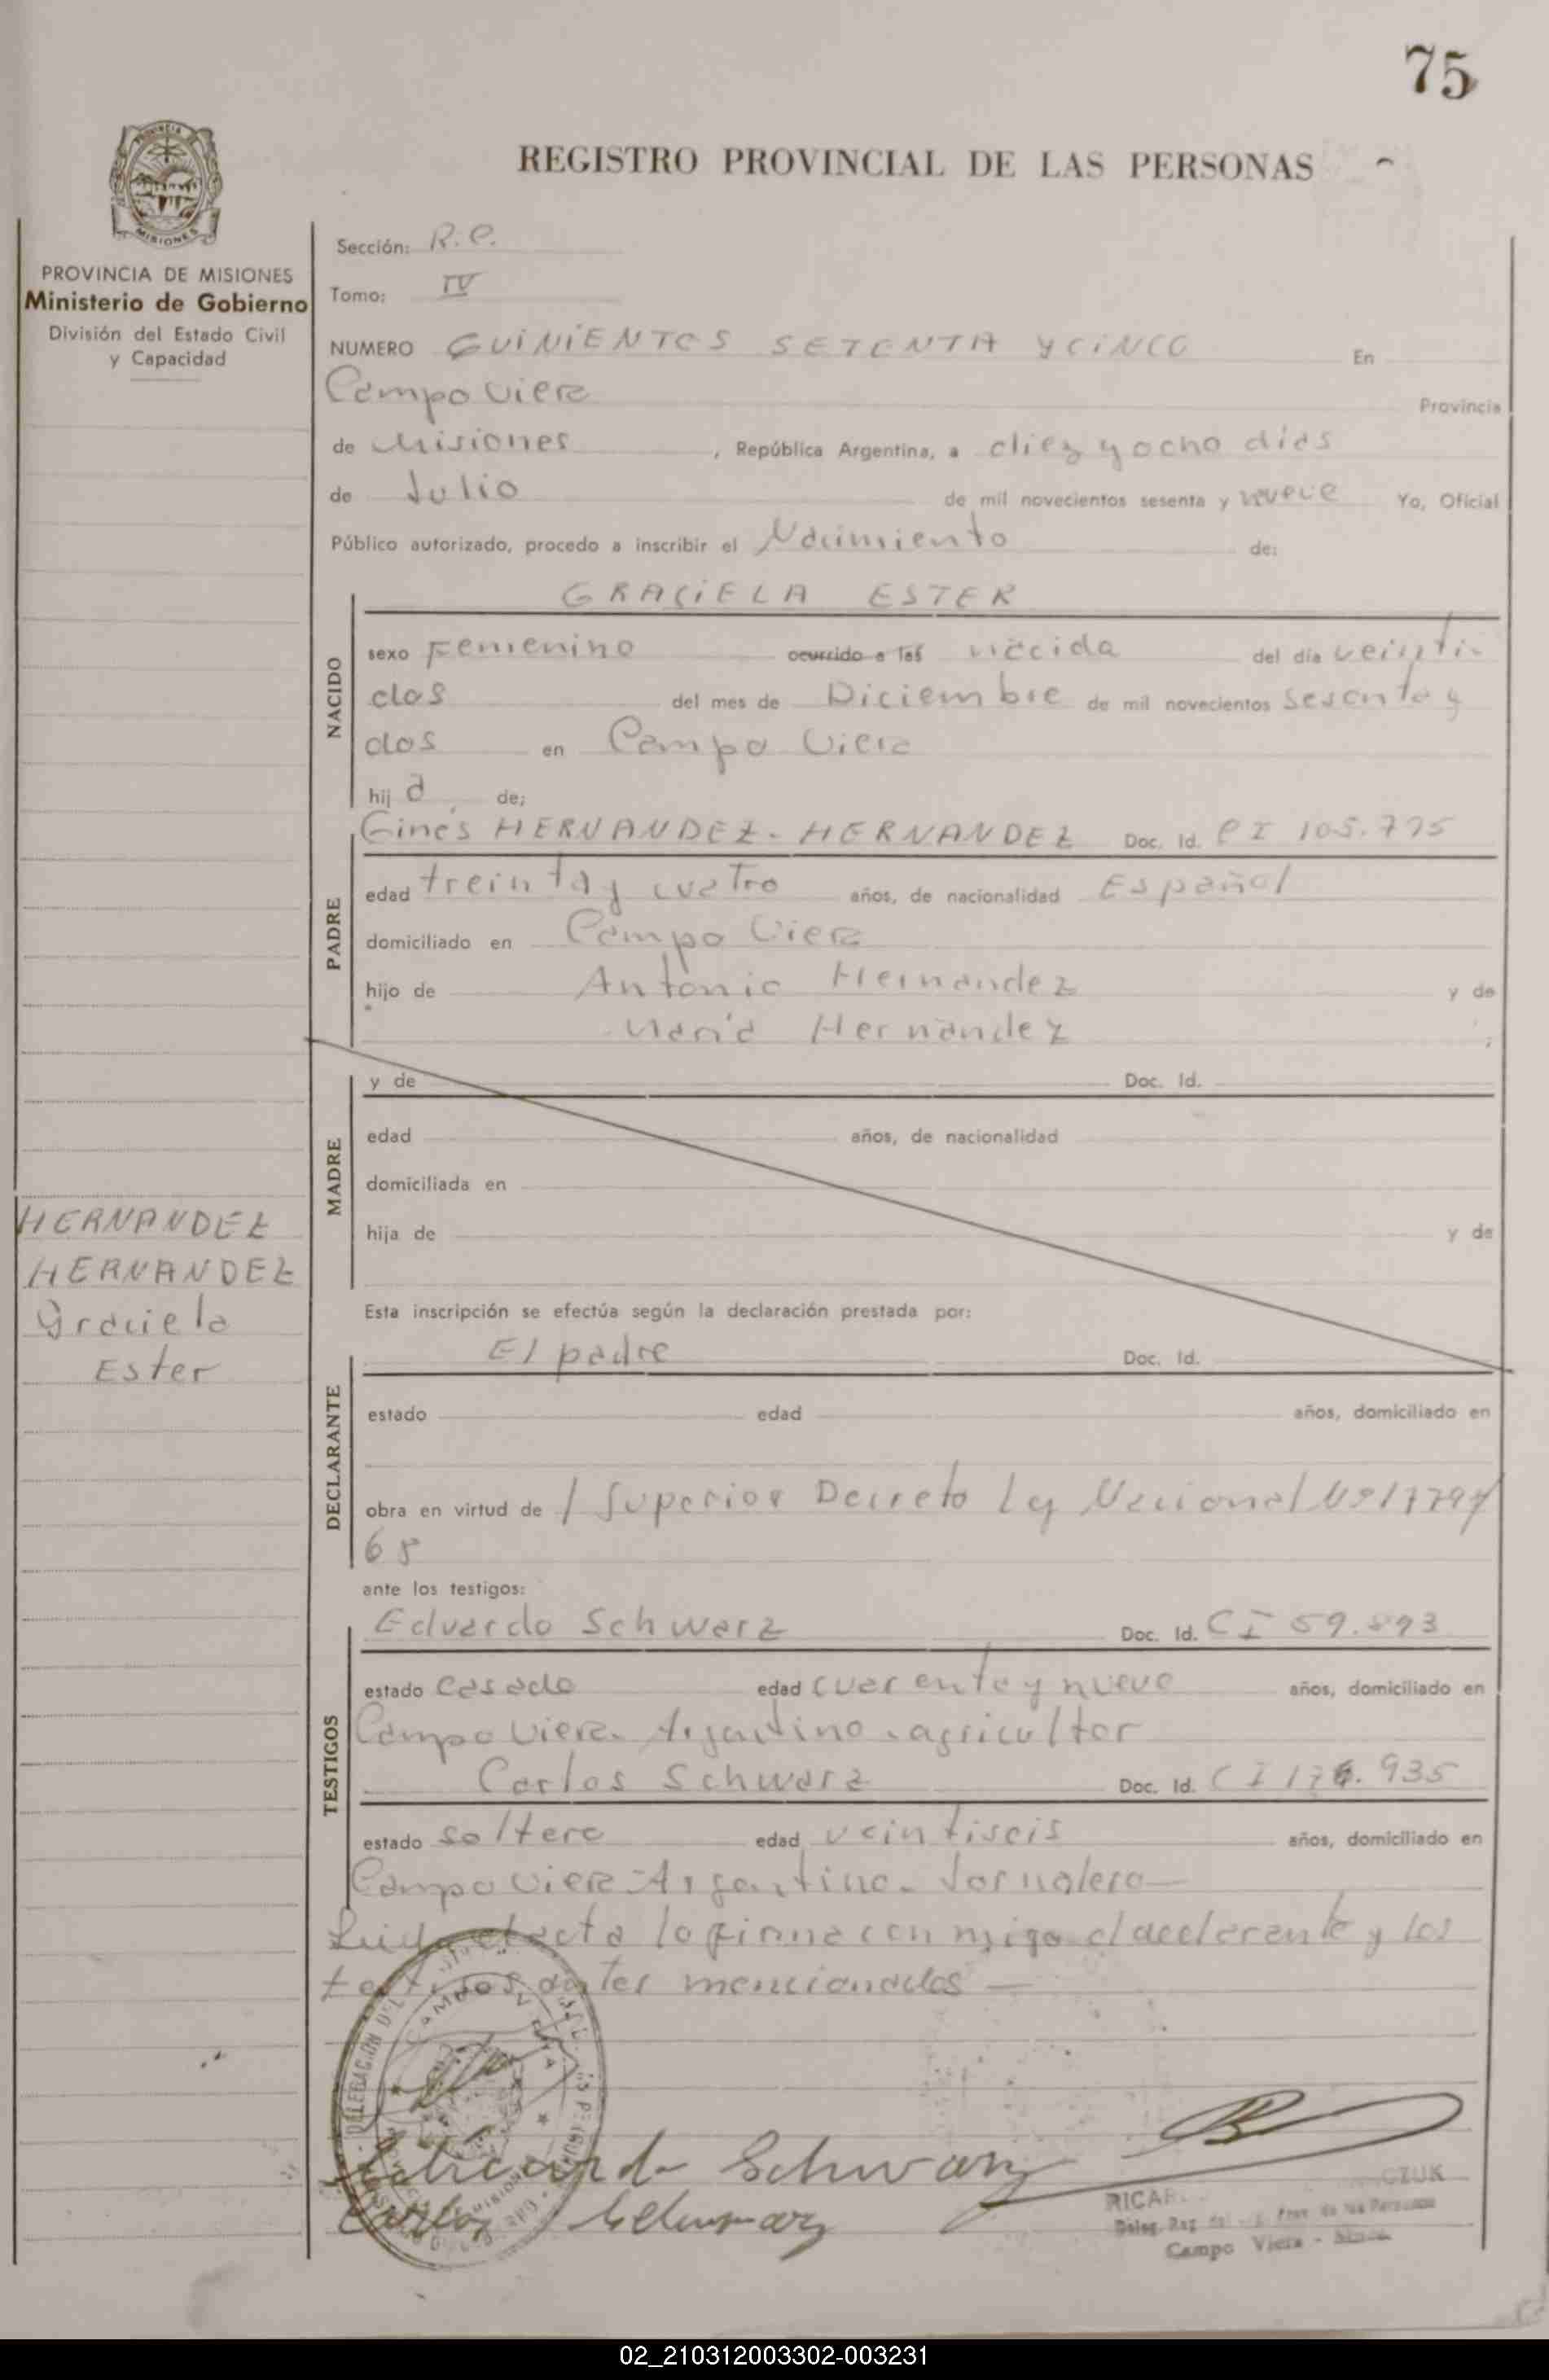 75
REGISTRO PROVINCIAL DE LAS PERSONAS
PROVINCIA DE MISIONES
Ministerio de Gobierno
División del Estado Civil
y Capacidad
Sección: R.C.
Tomo: IV
NUMERO QUINIENTOS SETENTA Y CINCO En
Campo Viera Provincia
de Misiones, República Argentina, a diez y ocho dias
de Julio de mil novecientos sesenta y nueve Yo, Oficial
Público autorizado, procedo a inscribir el Nacimiento de:
NACIDO
GRACIELA ESTER
sexo Femenino ocurrido a las nacida del día veinti
dos del mes de Diciembre de mil novecientos sesenta y
dos en Campo Viera
hij a de;
PADRE
Ginés HERNANDEZ-HERNANDEZ Doc. Id. CI 105.775
edad treinta y cuatro años, de nacionalidad Español
domiciliado en Campo Viera
hijo de Antonio Hernandez y de
María Hernandez ;
MADRE
y de Doc. Id.
edad años, de nacionalidad
domiciliada en
hija de y de
HERNANDEZ
HERNANDEZ
Graciela
Ester
Esta inscripción se efectúa según la declaración prestada por:
DECLARANTE
El padre Doc. Id.
estado edad años, domiciliado en
obra en virtud de / Superior Decreto Ley Nacional Nº 17794/
68
ante los testigos:
TESTIGOS
Eduardo Schwarz Doc. Id. CI 59.893
estado casado edad cuarenta y nueve años, domiciliado en
Campo Viera. Argentino. agricultor
Carlos Schwarz Doc. Id. CI 176.935
estado soltero edad veintiseis años, domiciliado en
Campo Viera - Argentino. Jornalero
Leida el acta la firma con migo el declarante y los
testigos antes mencionados
Eduardo Schwarz
Carlos Schwarz
Campo Viera
02_210312003302-003231